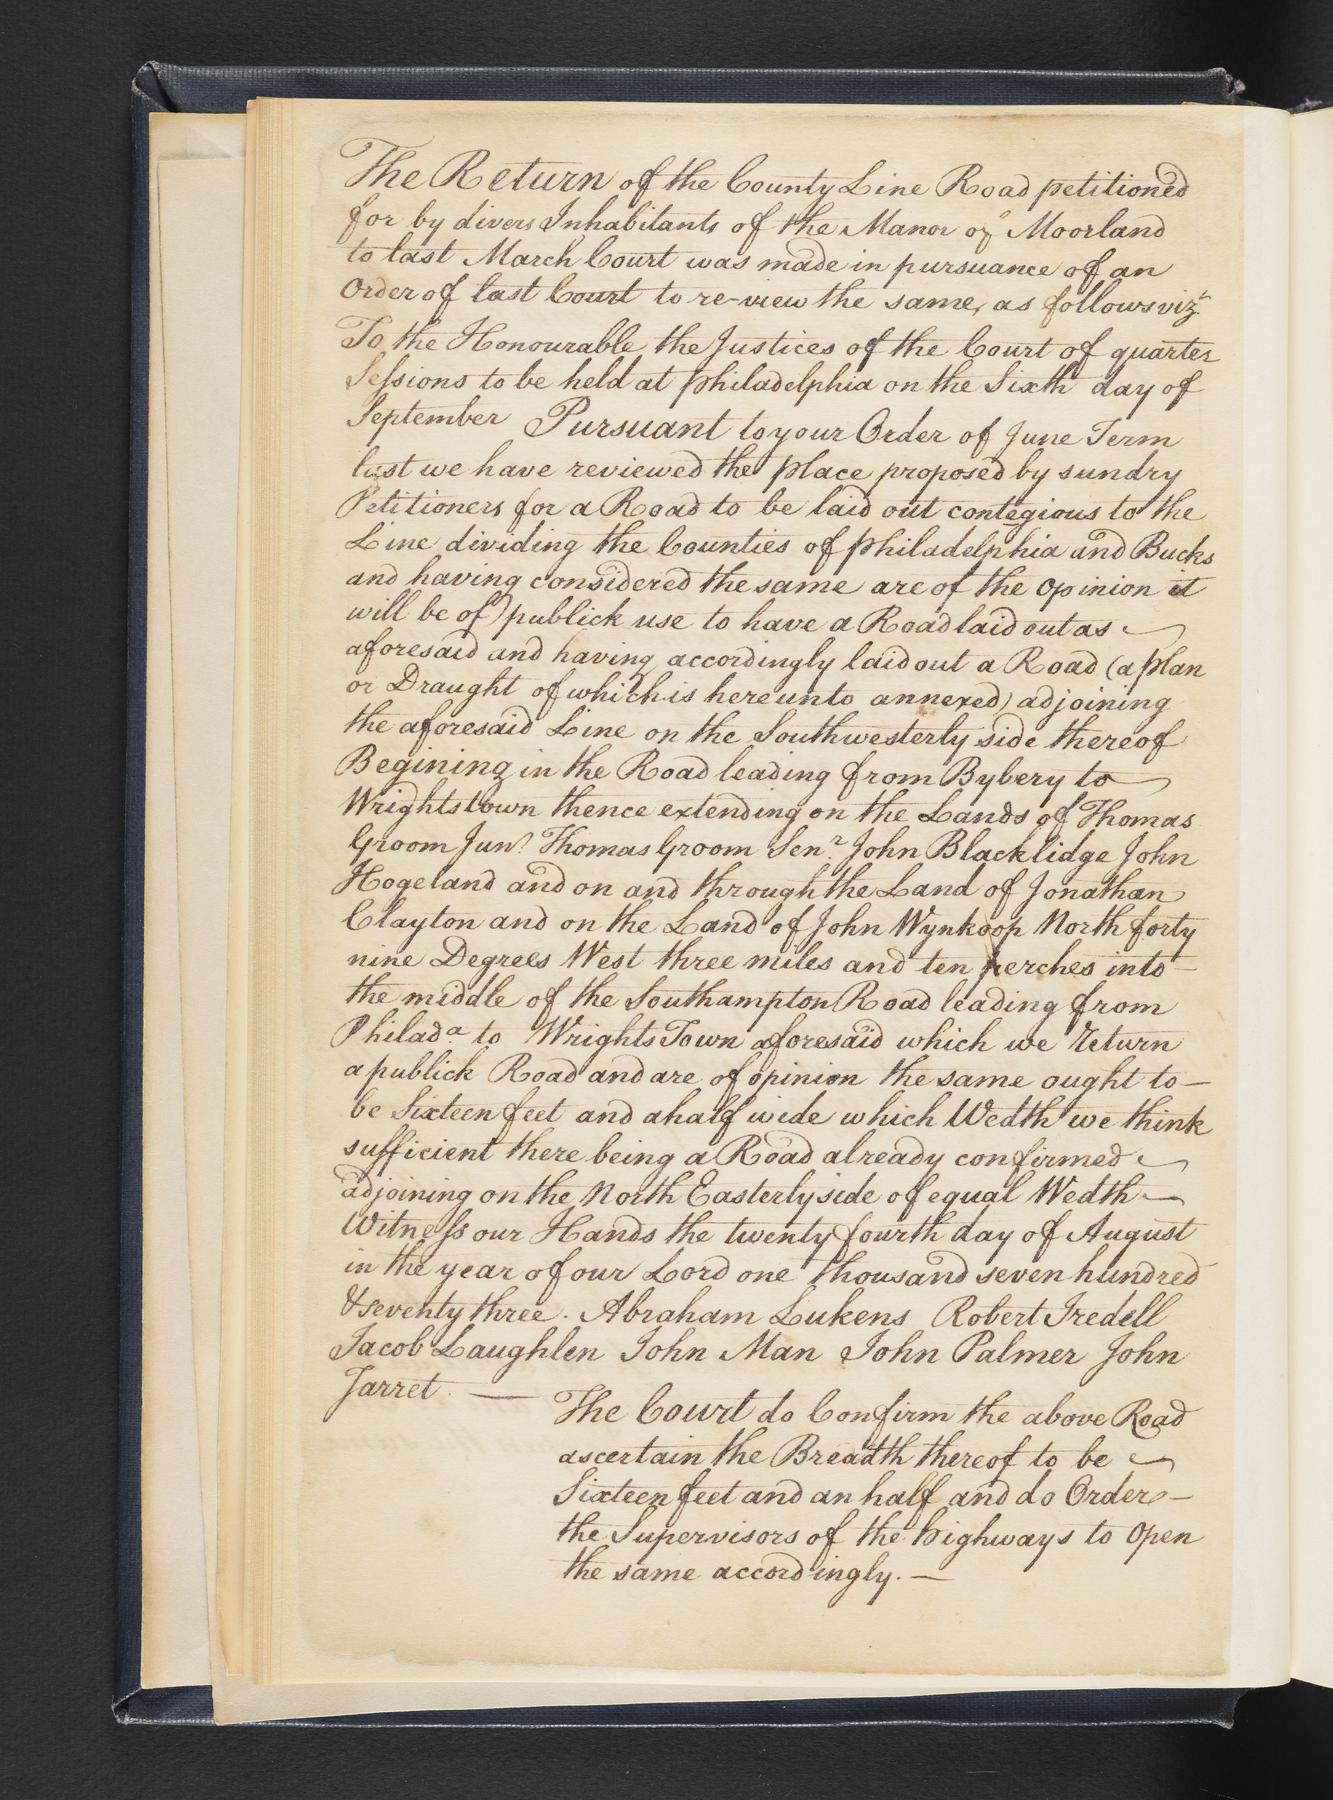 The Return of the County Line Road petitioned
for by divers Inhabitants of the Manor of Moorland
to last March Court was made in pursuance of an
Order of last Court to re-view the same, as follows vizt
To the Honourable the Justices of the Court of quarter
Sessions to be held at Philadelphia on the Sixth day of
September Pursuant to your Order of June Term
last we have reviewed the place proposed by sundry
Petitioners for a Road to be laid out contegious to the
Line dividing the Counties of Philadelphia and Bucks
and having considered the same are of the Opinion it
will be of publick use to have a Road laid out as
aforesaid and having accordingly laid out a Road (a plan
or Draught of which is hereunto annexed) adjoining
the aforesaid Line on the Southwesterly side thereof
Begining in the Road leading from Bybery to
Wrightstown thence extending on the Lands of Thomas
Groom Junr Thomas Groom Senr John Blacklidge John
Hogeland and on and through the Land of Jonathan
Clayton and on the Land of John Wynkoop North forty
nine Degrees West three miles and ten perches into -
the middle of the Southampton Road leading from
Philada to Wrights Town aforesaid which we return
a publick Road and are of opinion the same ought to -
be Sixteen feet and a half wide which Wedth we think
sufficient there being a Road already confirmed
adjoining on the North Easterly side of equal Wedth -
Witness our Hands the twenty fourth day of August
in the year of our Lord one thousand seven hundred
& seventy three. Abraham Lukens Robert Iredell
Jacob Laughlen John Man John Palmer John
Jarret. —
The Court do Confirm the above Road
ascertain the Breadth thereof to be
Sixteen feet and an half and do Order -
the Supervisors of the highways to Open
the same accordingly. —